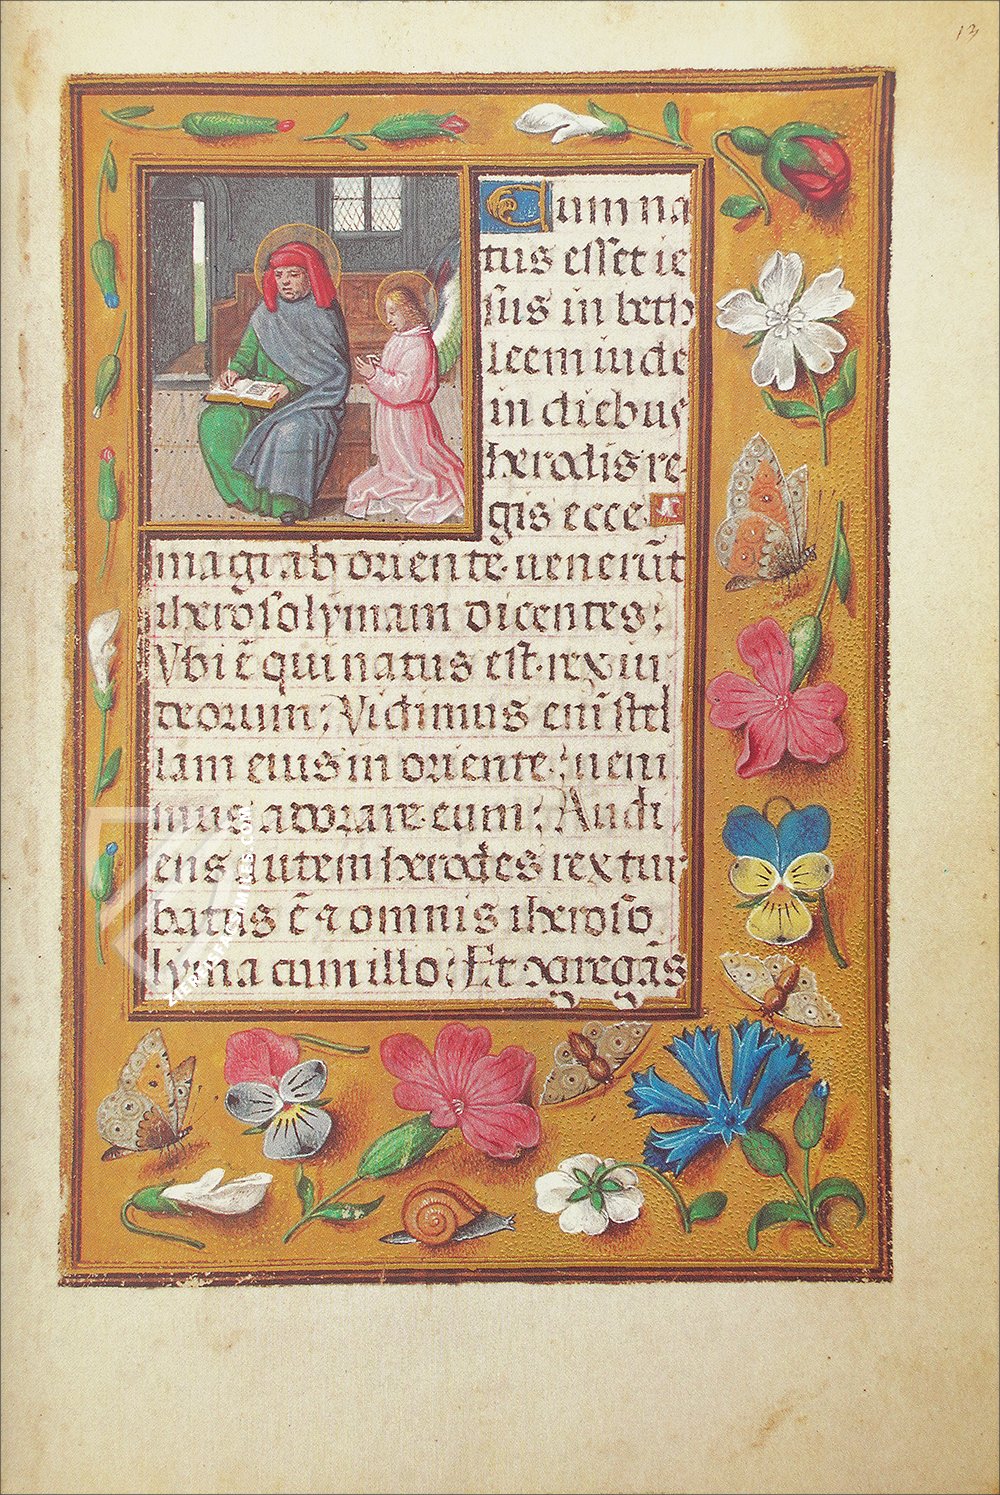 13
Cum na
tus esset ie
sus in beth
leem iude
in diebus
herodis re-
gis ecce
magi ab oriente. uenerūt
iherosolymam dicentes:
Vbi ē qui natus est. rex iu
deorum: Vidimus eni stel
lam eius in oriente.: ueni
mus adorare. eum: Audi
ens autem herodes rex tur
batus ē ⁊ omnis iheroso
lyma cum illo: Et ꝯgregās